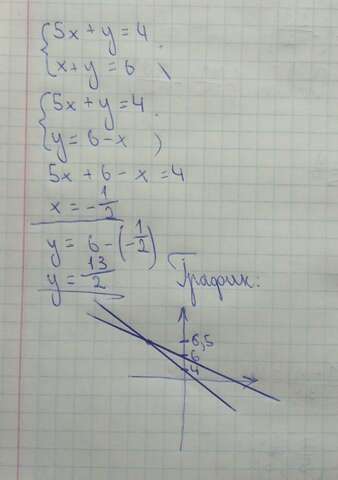 5x + y = 4
x + y = 6
5x + y = 4
y = 6 - x
5x + 6 - x = 4
x = -1/2
y = 6 - (-1/2)
y = 13/2
График:
6,5
6
4